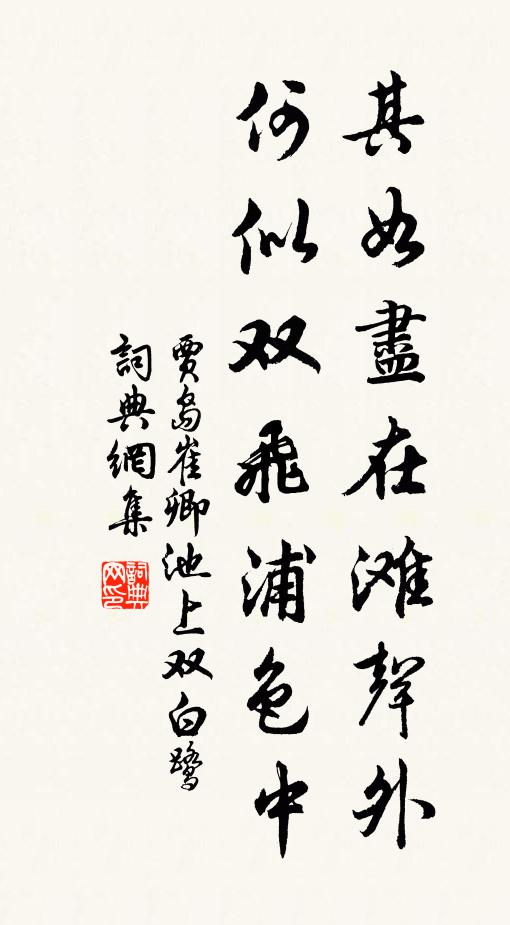 其如盡在滩聲外
何似双飛浦色中
賈島崔卿池上双白鹭
詞典網集
詞典网印